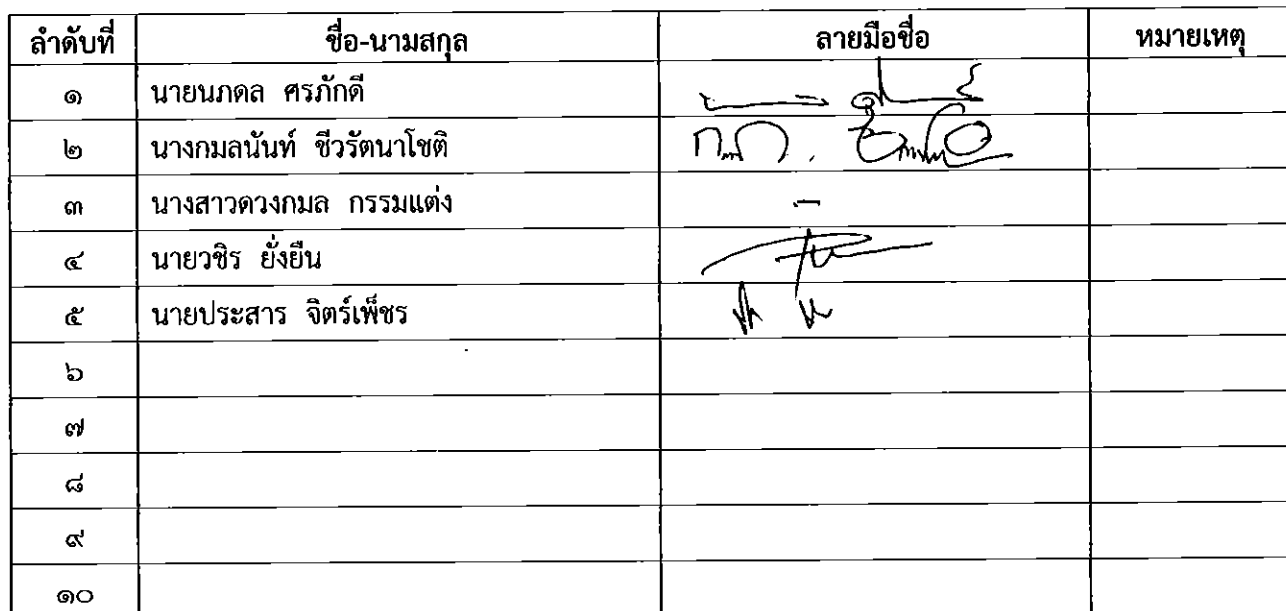 ลำดับที่ ชื่อ-นามสกุล ลายมือชื่อ หมายเหตุ
๑ นายนภดล ศรภักดี
๒ นางกมลนันท์ ชีวรัตนาโชติ
๓ นางสาวดวงกมล กรรมแต่ง -
๔ นายวชิร ยั่งยืน
๕ นายประสาร จิตร์เพ็ชร
๖
๗
๘
๙
๑๐